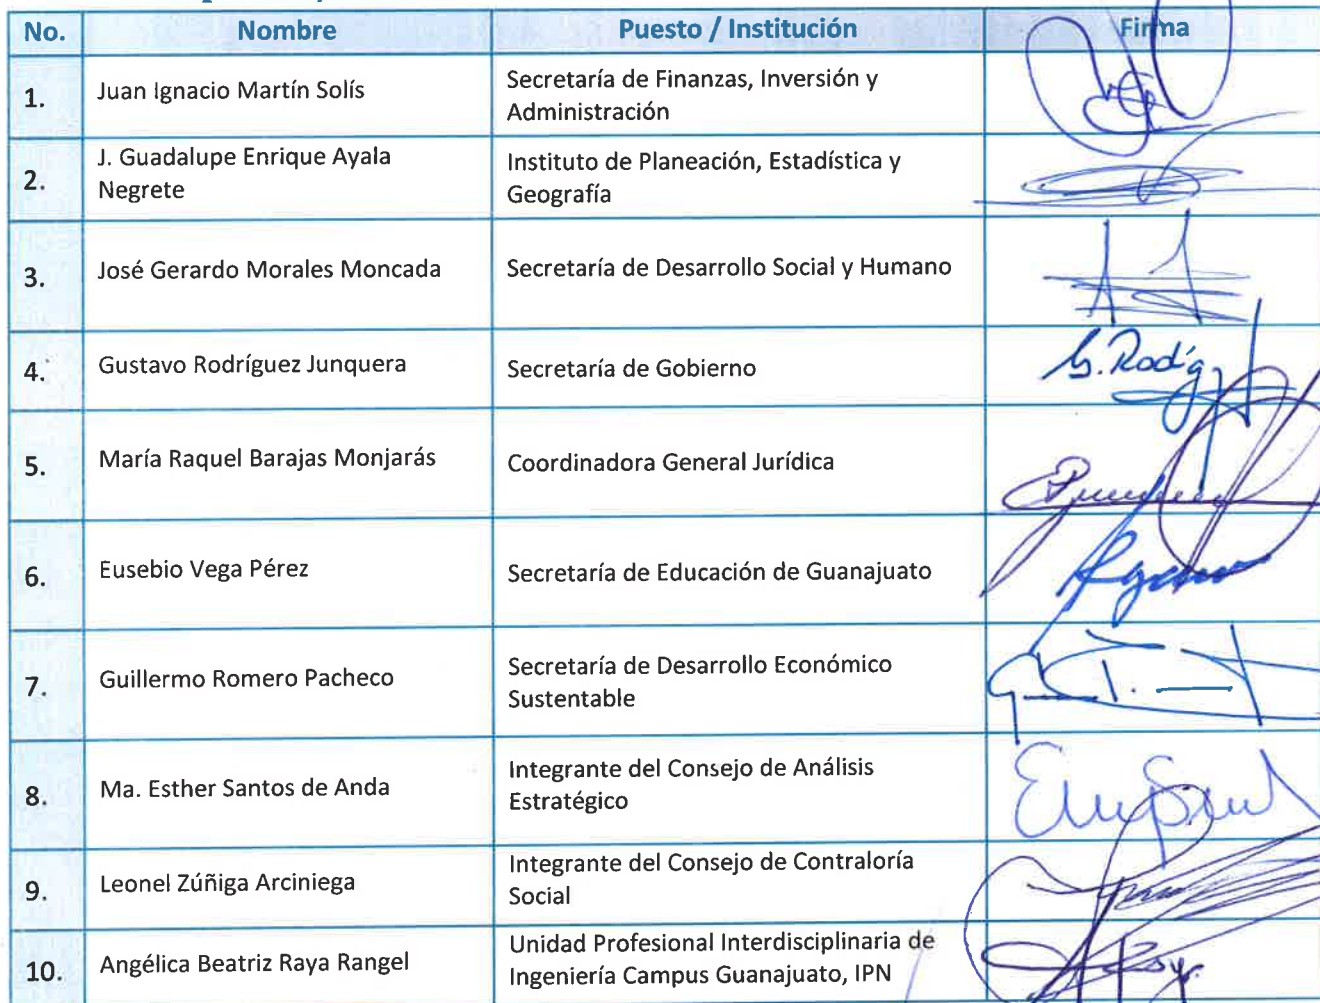 No. Nombre Puesto / Institución Firma
1. Juan Ignacio Martín Solís Secretaría de Finanzas, Inversión y
Administración
2. J. Guadalupe Enrique Ayala
Negrete Instituto de Planeación, Estadística y
Geografía
3. José Gerardo Morales Moncada Secretaría de Desarrollo Social y Humano
4. Gustavo Rodríguez Junquera Secretaría de Gobierno
5. María Raquel Barajas Monjarás Coordinadora General Jurídica
6. Eusebio Vega Pérez Secretaría de Educación de Guanajuato
7. Guillermo Romero Pacheco Secretaría de Desarrollo Económico
Sustentable
8. Ma. Esther Santos de Anda Integrante del Consejo de Análisis
Estratégico
9. Leonel Zúñiga Arciniega Integrante del Consejo de Contraloría
Social
10. Angélica Beatriz Raya Rangel Unidad Profesional Interdisciplinaria de
Ingeniería Campus Guanajuato, IPN